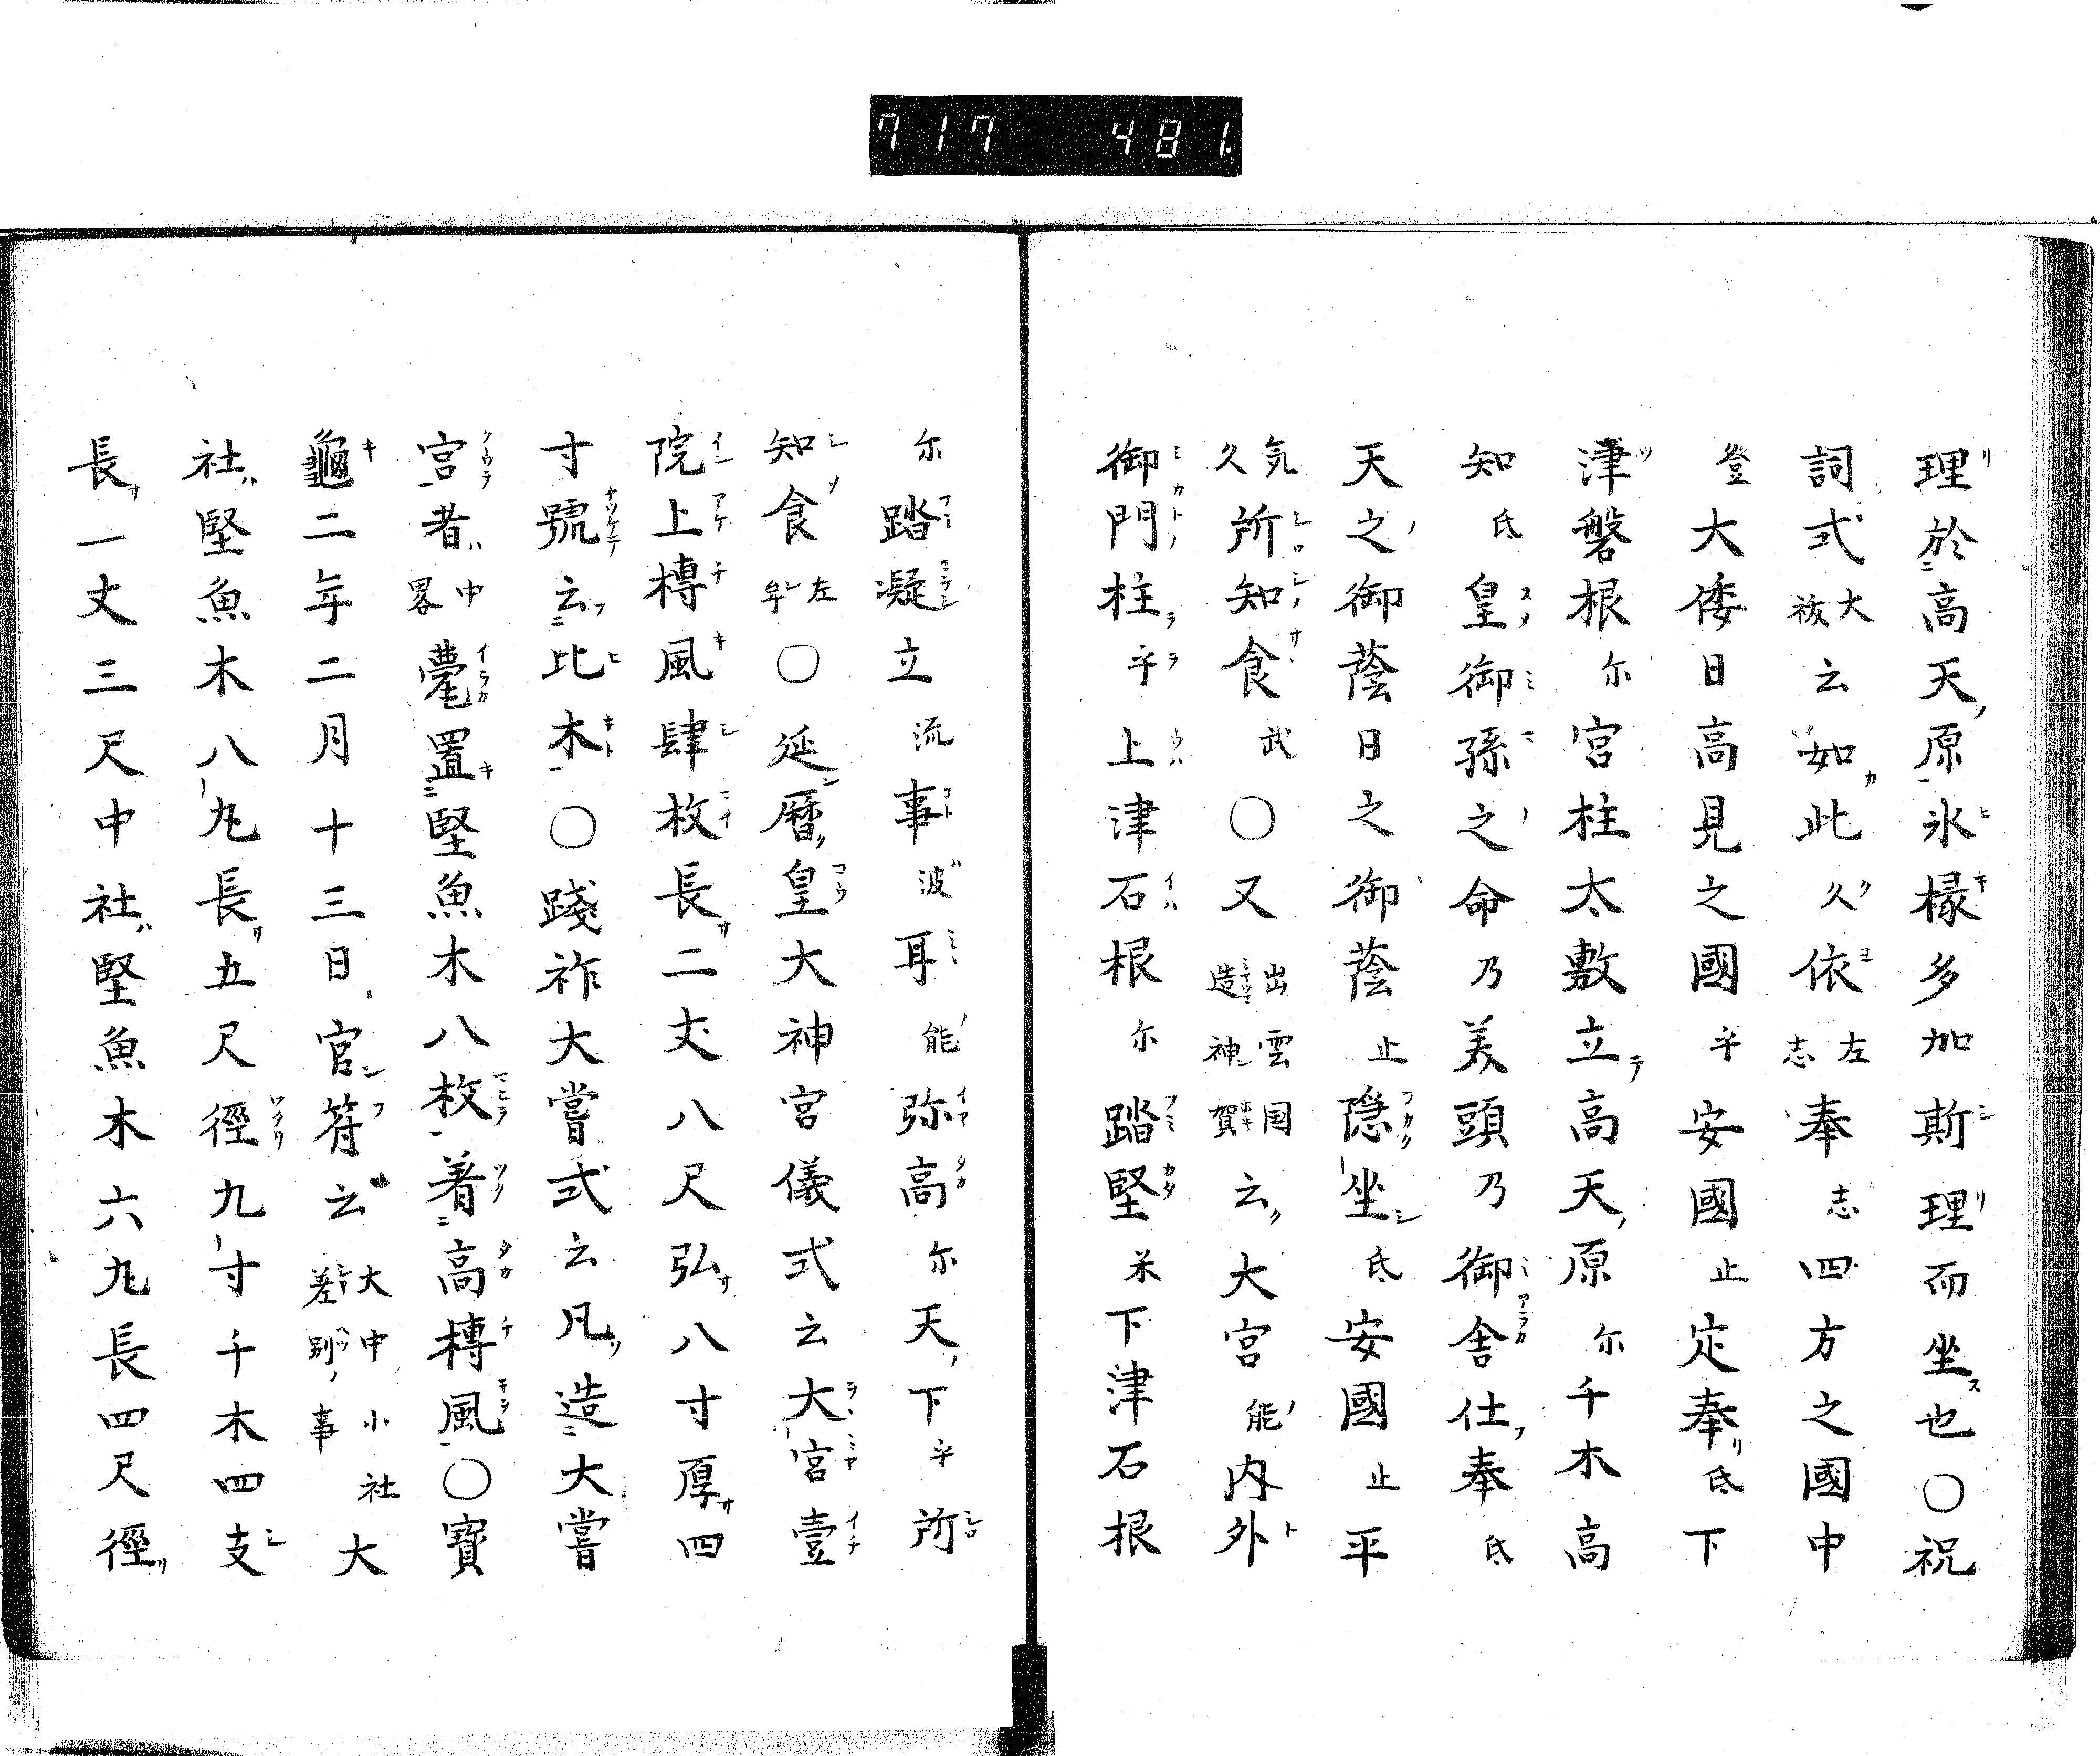 717 481
理於高天原氷椽多加斯理而坐也○祝
詞式大祓云如此久依左志奉志四方之國中
登大倭日高見之國乎安國止定奉氐下
津磐根尓宮柱太敷立高天原尓千木高
知氐皇御孫之命乃美頭乃御舎仕奉氐
天之御蔭日之御蔭止隠坐氐安國止平
気久所知食武○又出雲国造神賀云大宮能内外
御門柱乎上津石根尓踏堅米下津石根
尓踏凝立流事波耳能弥高尓天下乎所
知食左牟○延暦皇大神宮儀式云大宮壹
院上榑風肆枚長二丈八尺弘八寸厚四
寸號云比木○踐祚大嘗式云凡造大嘗
宮者中畧甍置堅魚木八枚着高榑風○寶
龜二年二月十三日官符云大中小社差別事大
社堅魚木八丸長五尺徑九寸千木四支
長一丈三尺中社堅魚木六丸長四尺徑